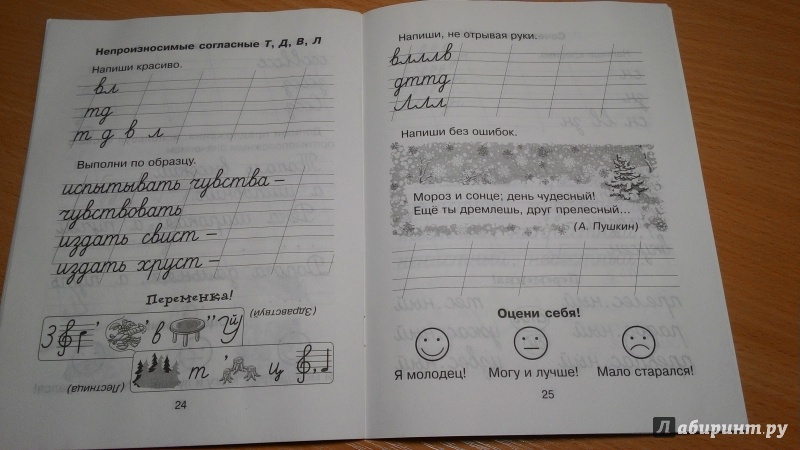 Непроизносимые согласные Т, Д, В, Л
Напиши красиво.
вл
тд
т д в л
Выполни по образцу.
испытывать чувства –
чувствовать
издать свист –
издать хруст –
Переменка!
(Здравствуй)
З ’ ’ в ” уй
(Лестница)
т ’ ц
24
Напиши, не отрывая руки.
влллв
дттд
Ллл
Напиши без ошибок.
Мороз и сонце; день чудесный!
Ещё ты дремлешь, друг прелесный...
(А. Пушкин)
Оцени себя!
Я молодец! Могу и лучше! Мало старался!
25
Лабиринт.ру